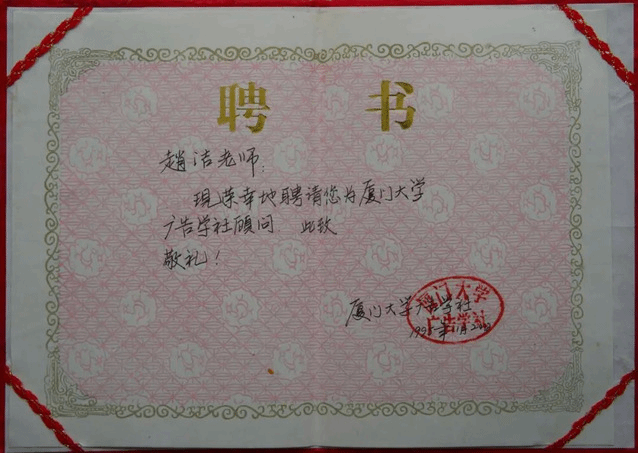 聘 书
趙洁老师:
现荣幸地聘请您为厦门大学
广告学社顾问 此致
敬礼!
厦门大学广告学社
厦门大学
广告学社